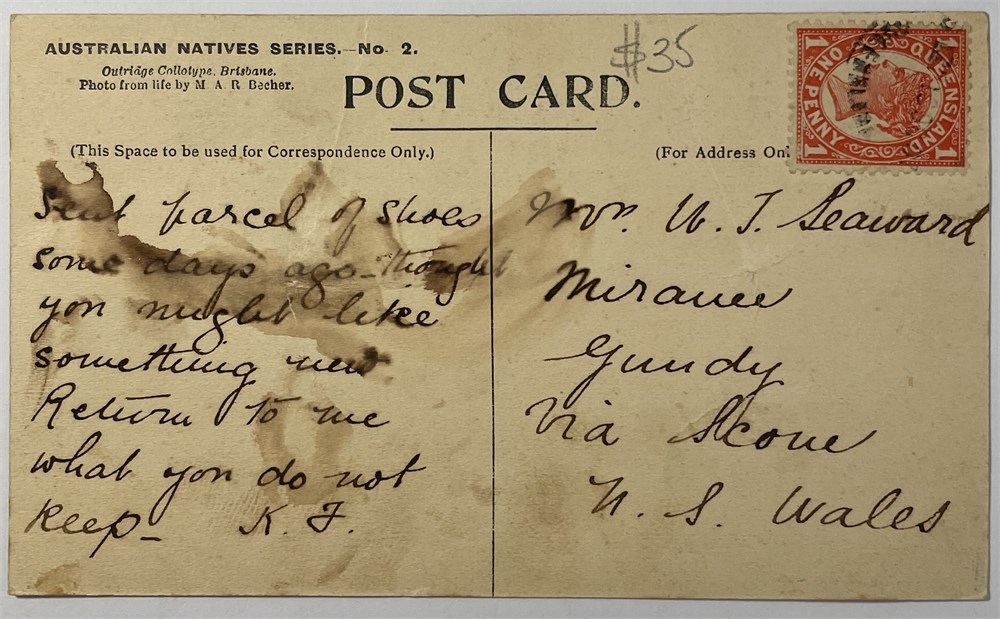 AUSTRALIAN NATIVES SERIES.—No. 2.
Outridge Collotype, Brisbane.
Photo from life by M. A. R. Becher.
$35
POST CARD.
QUEENSLAND
ONE PENNY
1 1
(This Space to be used for Correspondence Only.)
(For Address Onl
Sent parcel of shoes
some days ago - thought
you might like
something new
Return to me
what you do not
keep - K. F.
Seaward
Gundy
Via Scone
N. S. Wales